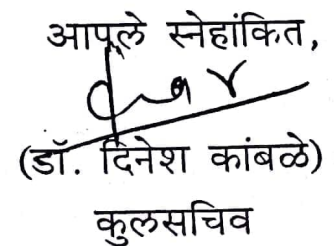 आपले स्नेहांकित,
(डॉ. दिनेश कांबळे)
कुलसचिव